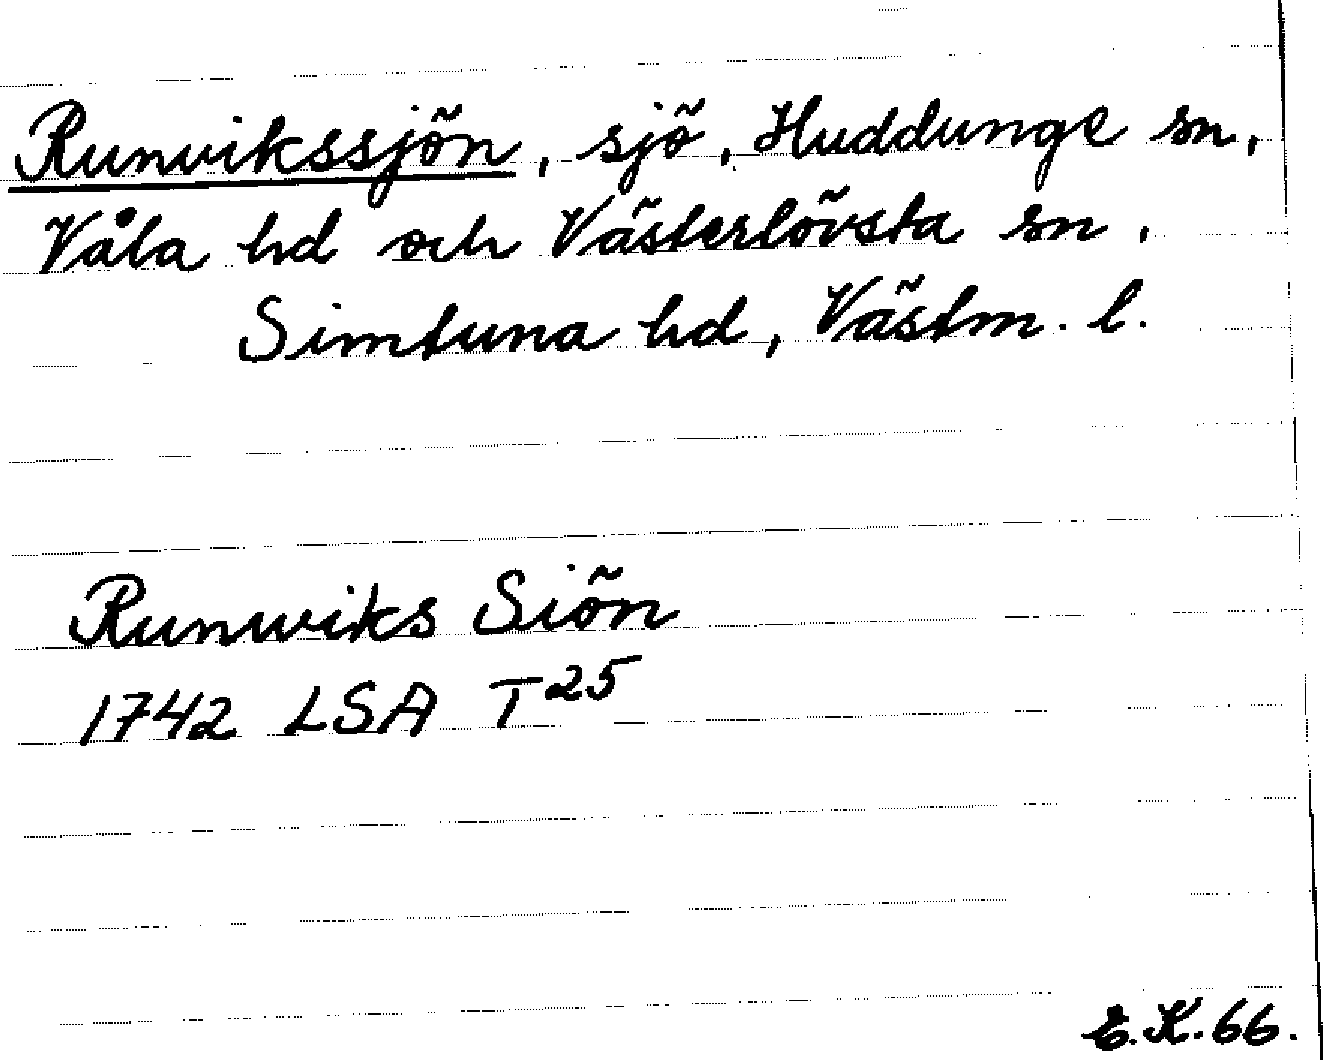 Runvikssjön, sjö, Huddunge sn,
Våla hd och Västerlövsta sn,
Simtuna hd, Västm. l.
Runwiks Siön
1742 LSA T25
E.K. 66.